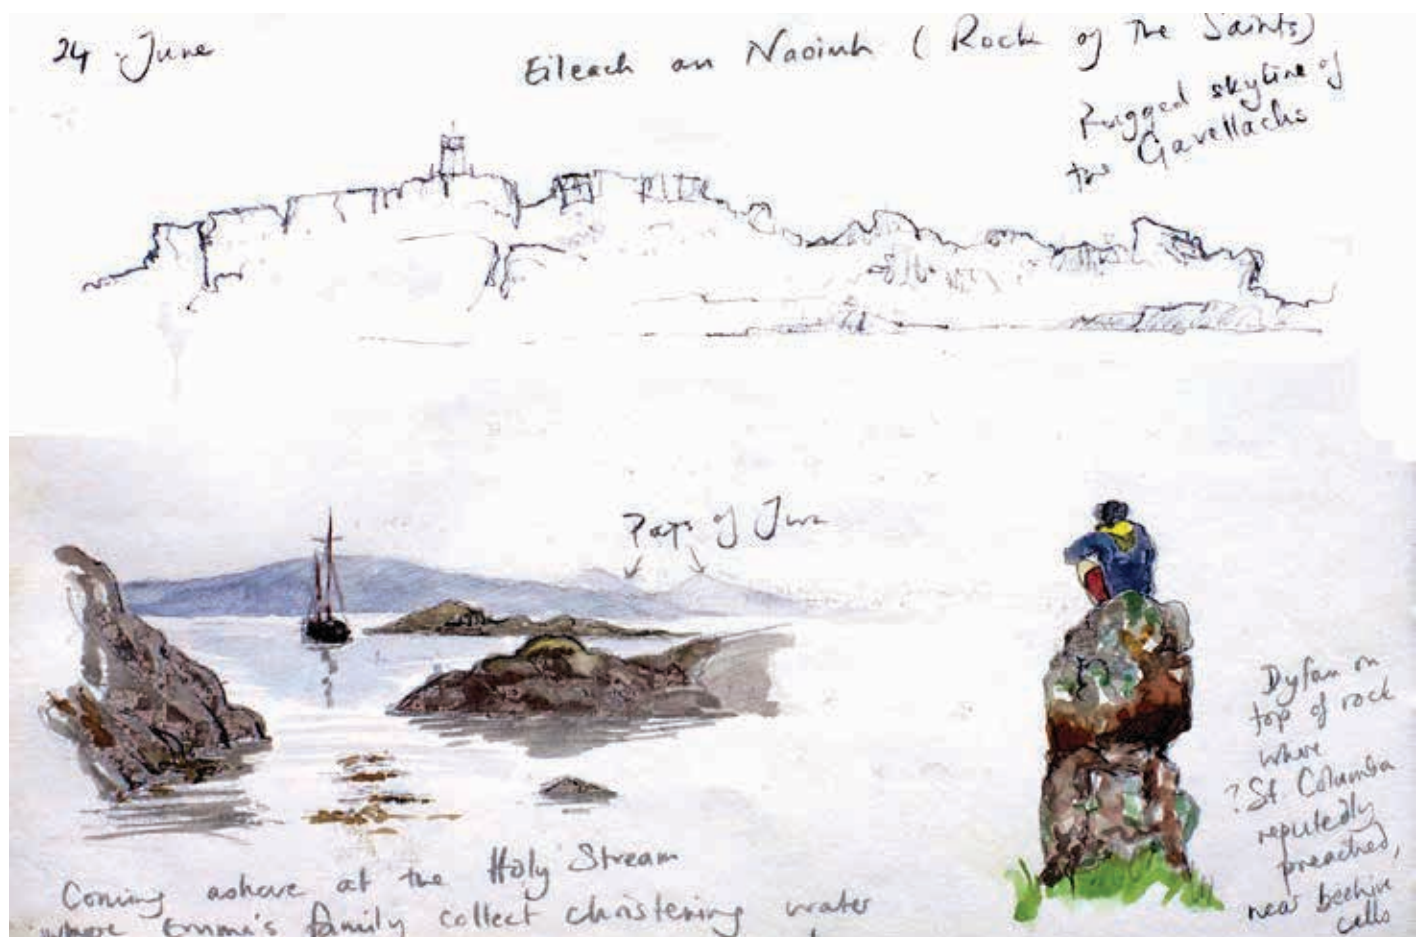 24 June
Eileach an Naoimh (Rock of the Saints)
Rugged skyline of
the Garvellachs
Paps of Jura
Dyfan on
top of rock
where
? St Columba
reputedly
preached,
near beehive
cells
Coming ashore at the Holy Stream
where Emma's family collect christening water